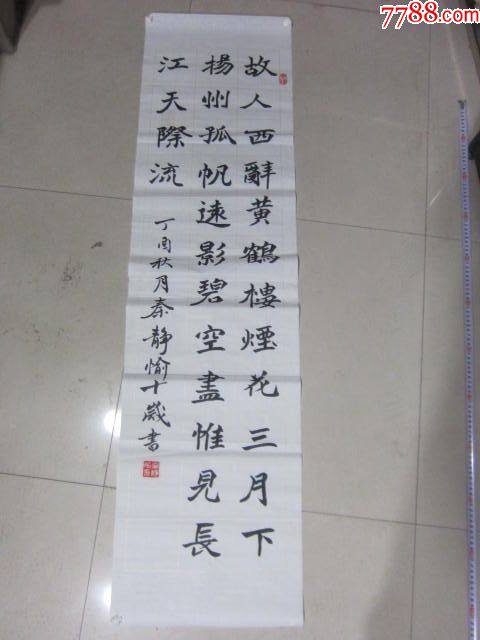 7788.com
故人西辭黄鶴樓煙花三月下
揚州孤帆遠影碧空盡惟見長
江天際流
丁酉秋月秦靜愉十歲書